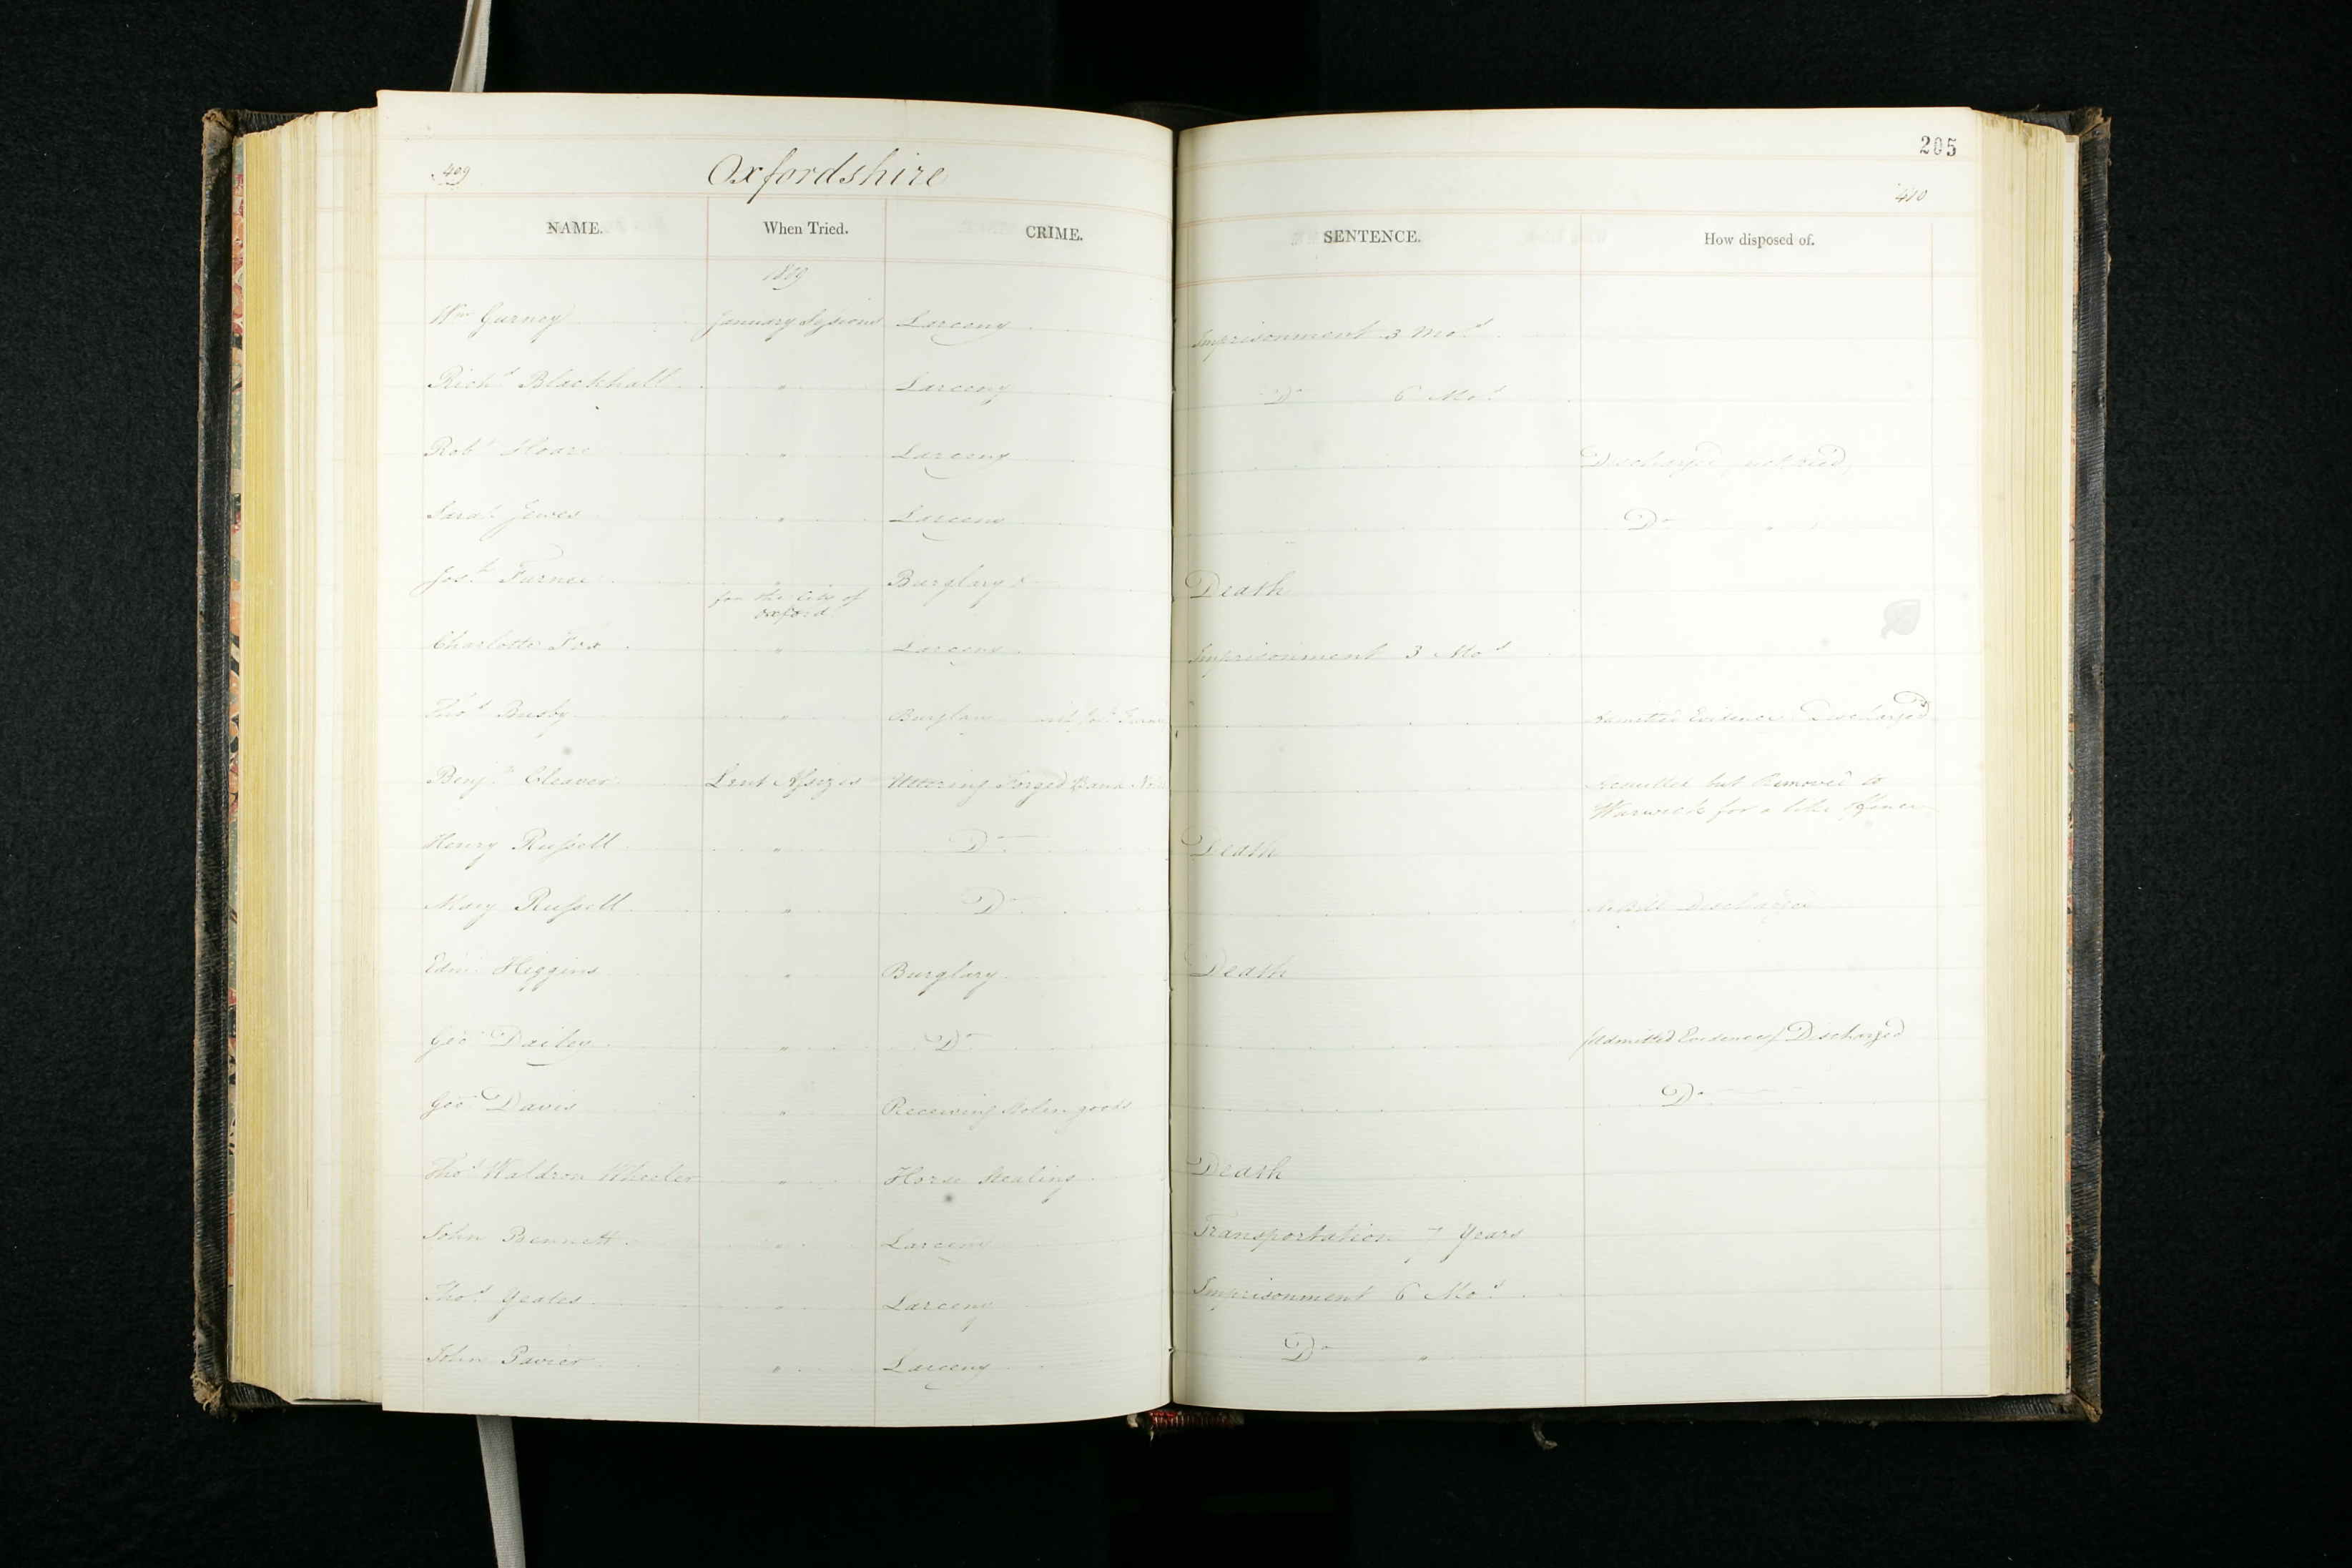 205
409 Oxfordshire 410
NAME. When Tried. CRIME. SENTENCE. How disposed of.
1809
Wm Gurney January Sessions Larceny Imprisonment 3 Mos
Richd Blackhall " Larceny Do 6 Mos
Robt Hoare " Larceny Discharged not tried
Sarah Jewes " Larceny Do " "
Josh Turner " Burglary Death
for the City of
Oxford
Charlotte Fox " Larceny Imprisonment 3 Mos
Thos Busby " Burglary with Admitted Evidence Discharged
Benjn Cleaver Lent Assizes Uttering Forged Bank Notes Acquitted but Removed to
Warwick for a like offence
Henry Russell " Do Death
Mary Russell " Do No Bill Discharged
Edwd Higgins " Burglary Death
Geo Dailey " Do (Admitted Evidence) Discharged
Geo Davis " Receiving stolen goods Do
Thos Waldron Wheeler " Horse stealing Death
John Bennett " Larceny Transportation 7 Years
Thos Yeates " Larceny Imprisonment 6 Mos
John Pavier " Larceny Do "